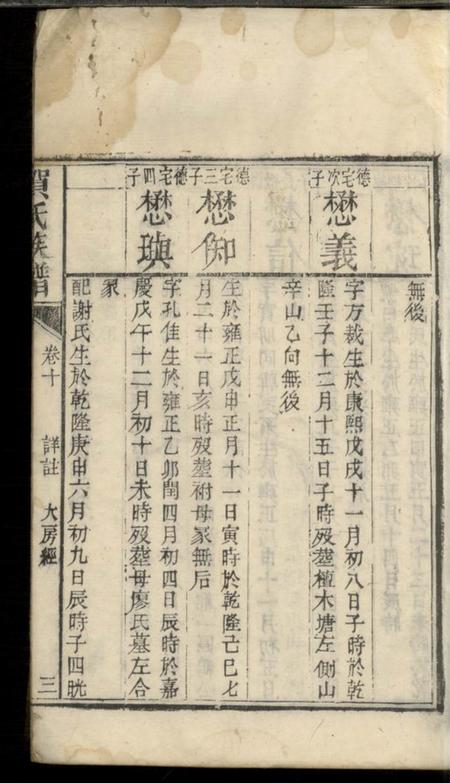 無後
德宅次子
懋義
字万裁生於康熙戊戌十一月初八日子時於乾
隆壬子十二月十五日子時殁塟檀木塘左側山
辛山乙向無後
德宅三子
懋知
生於雍正戊申正月十一日寅時於乾隆己巳七
月二十一日亥時殁塟祔母冢無后
德宅四子
懋璵
字孔佳生於雍正乙卯閏四月初四日辰時於嘉
慶戊午十二月初十日未時殁塟母廖氏墓左合
冢
配謝氏生於乾隆庚申六月初九日辰時子四晄
賀氏族譜
卷十
詳註
大房經
三